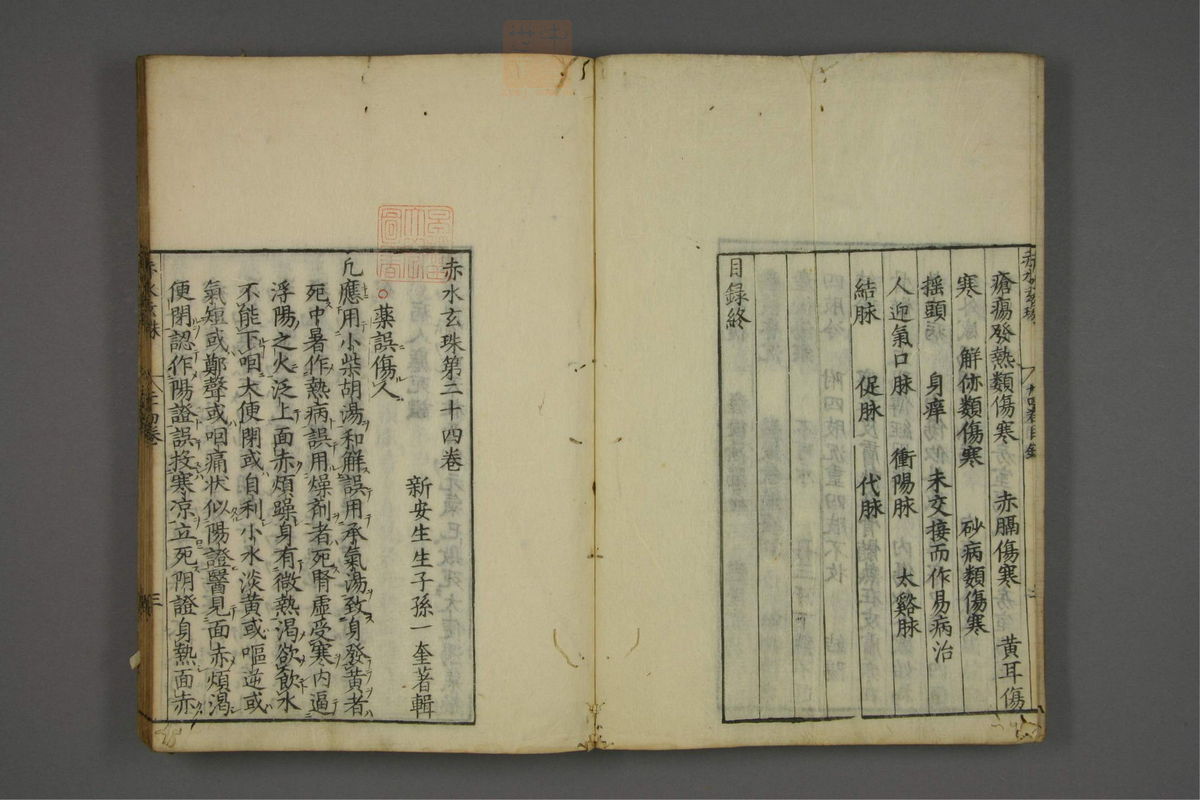 瘡瘍發熱類傷寒　赤膈傷寒　黃耳傷
寒　解㑊類傷寒　砂病類傷寒
搖頭　身痒　未交接而作易病治
人迎氣口脉　衝陽脉　太谿脉
結脉　促脉　代脉
目録終
赤水玄珠第二十四卷
新安生生子孫一奎著輯
○藥誤傷人
凡應用小柴胡湯和解誤用承氣湯致身發黃者
死中暑作熱病誤用燥劑者死腎虛受寒内逼
浮陽之火泛上面赤煩躁身有微熱渴欲飲水
不能下咽大便閉或自利小水淡黃或嘔逆或
氣短或鄭聲或咽痛狀似陽證醫見面赤煩渴
便閉認作陽證誤投寒凉立死阴證身熱面赤